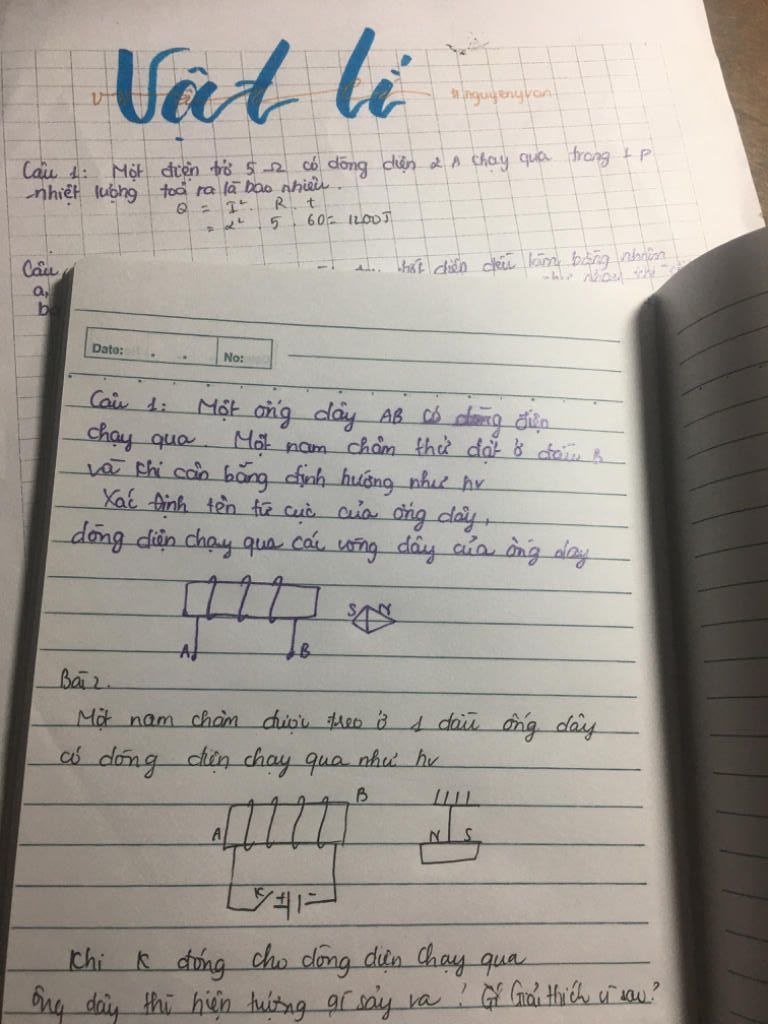 Vật lí
#nguyenyvan
Câu 1: Một điện trở 5 Ω có dòng điện 2 A chạy qua trong 1 p
nhiệt lượng toả ra là bao nhiêu.
Q = I². R. t
= 2². 5. 60 = 1200J
Câu tiết diện đều làm bằng nhôm
a, như nhau thì
b
Date: . . No:
Câu 1: Một ống dây AB có dòng điện
chạy qua. Một nam châm thử đặt ở đầu B
và khi cân bằng định hướng như hv
Xác định tên từ cực của ống dây,
dòng điện chạy qua các vòng dây của ống dây
S N
A B
Bài 2.
Một nam châm được treo ở 1 đầu ống dây
có dòng điện chạy qua như hv
B
A N S
K + -
Khi K đóng cho dòng điện chạy qua
ống dây thì hiện tượng gì sảy ra ? Giải thích vì sao?